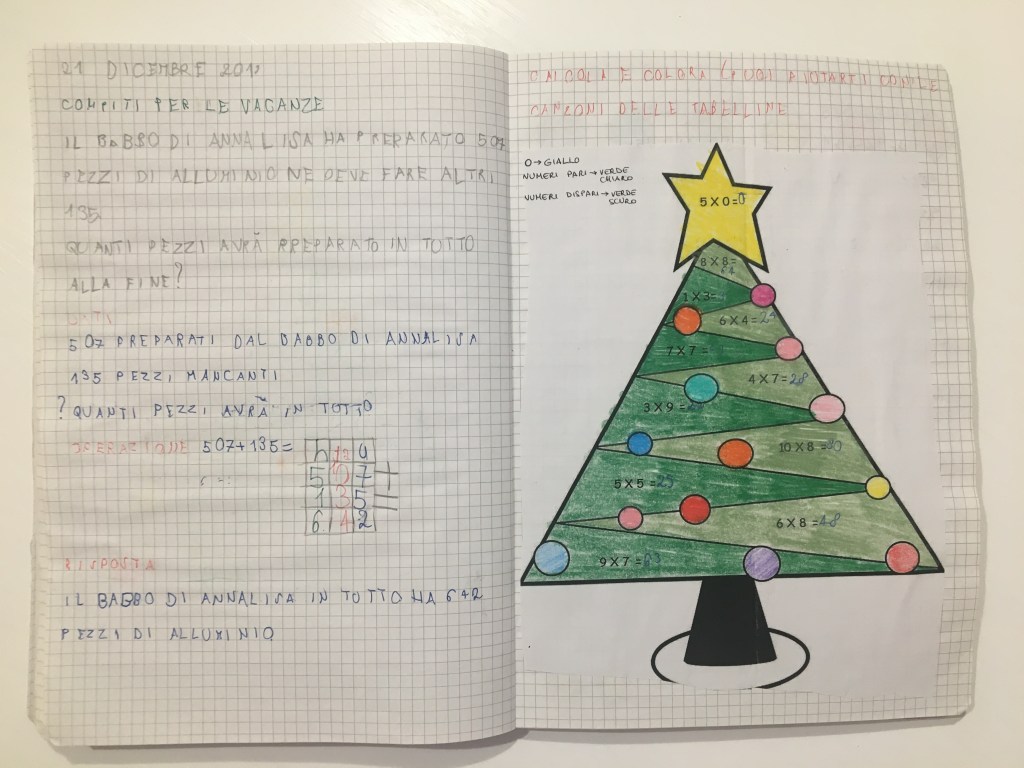 21 DICEMBRE
COMPITI PER LE VACANZE
IL BABBO DI ANNALISA HA PREPARATO 507
PEZZI DI ALLUMINIO NE DEVE FARE ALTRI
135
QUANTI PEZZI AVRÀ PREPARATO IN TOTTO
ALLA FINE?
DATI
507 PREPARATI DAL BABBO DI ANNALISA
135 PEZZI MANCANTI
? QUANTI PEZZI AVRÀ IN TOTTO
OPERAZIONE 507+135=
h da u
5 0 7 +
1 3 5 =
6 4 2
RISPOSTA
IL BABBO DI ANNALISA IN TUTTO HA 642
PEZZI DI ALLUMINIO
CALCOLA E COLORA (PUOI AIUTARTI CON LE
CANZONI DELLE TABELLINE
0→GIALLO
NUMERI PARI→VERDE
CHIARO
NUMERI DISPARI→VERDE
SCURO
5X0=0
8X8=
64
1X3=
6X4=24
7X7=
4X7=28
3X9=
10X8=80
5X5=25
6X8=48
9X7=63